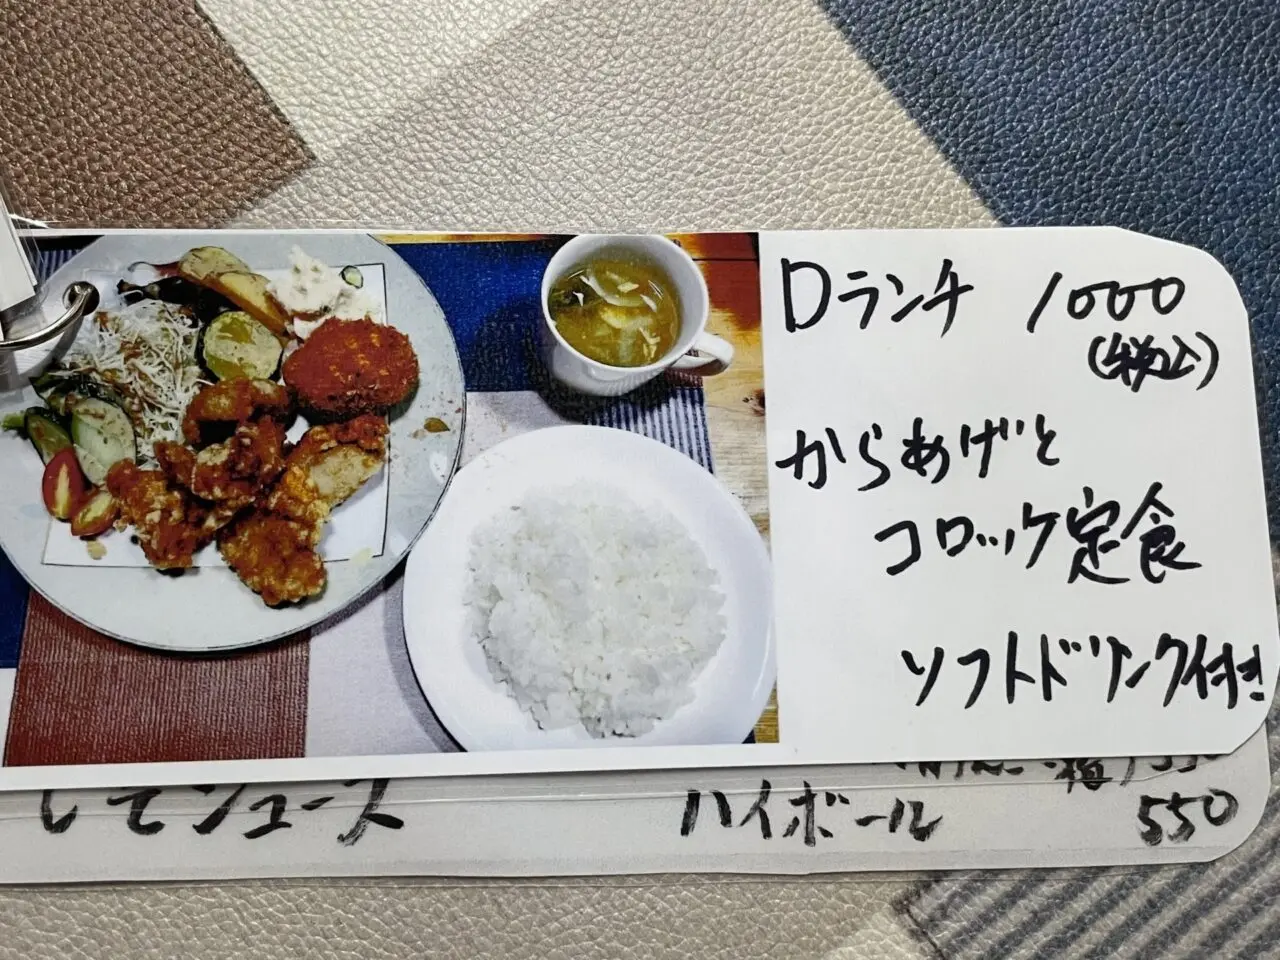 Dランチ 1000
(税込)
からあげと
コロッケ定食
ソフトドリンク付き
ハイボール 550